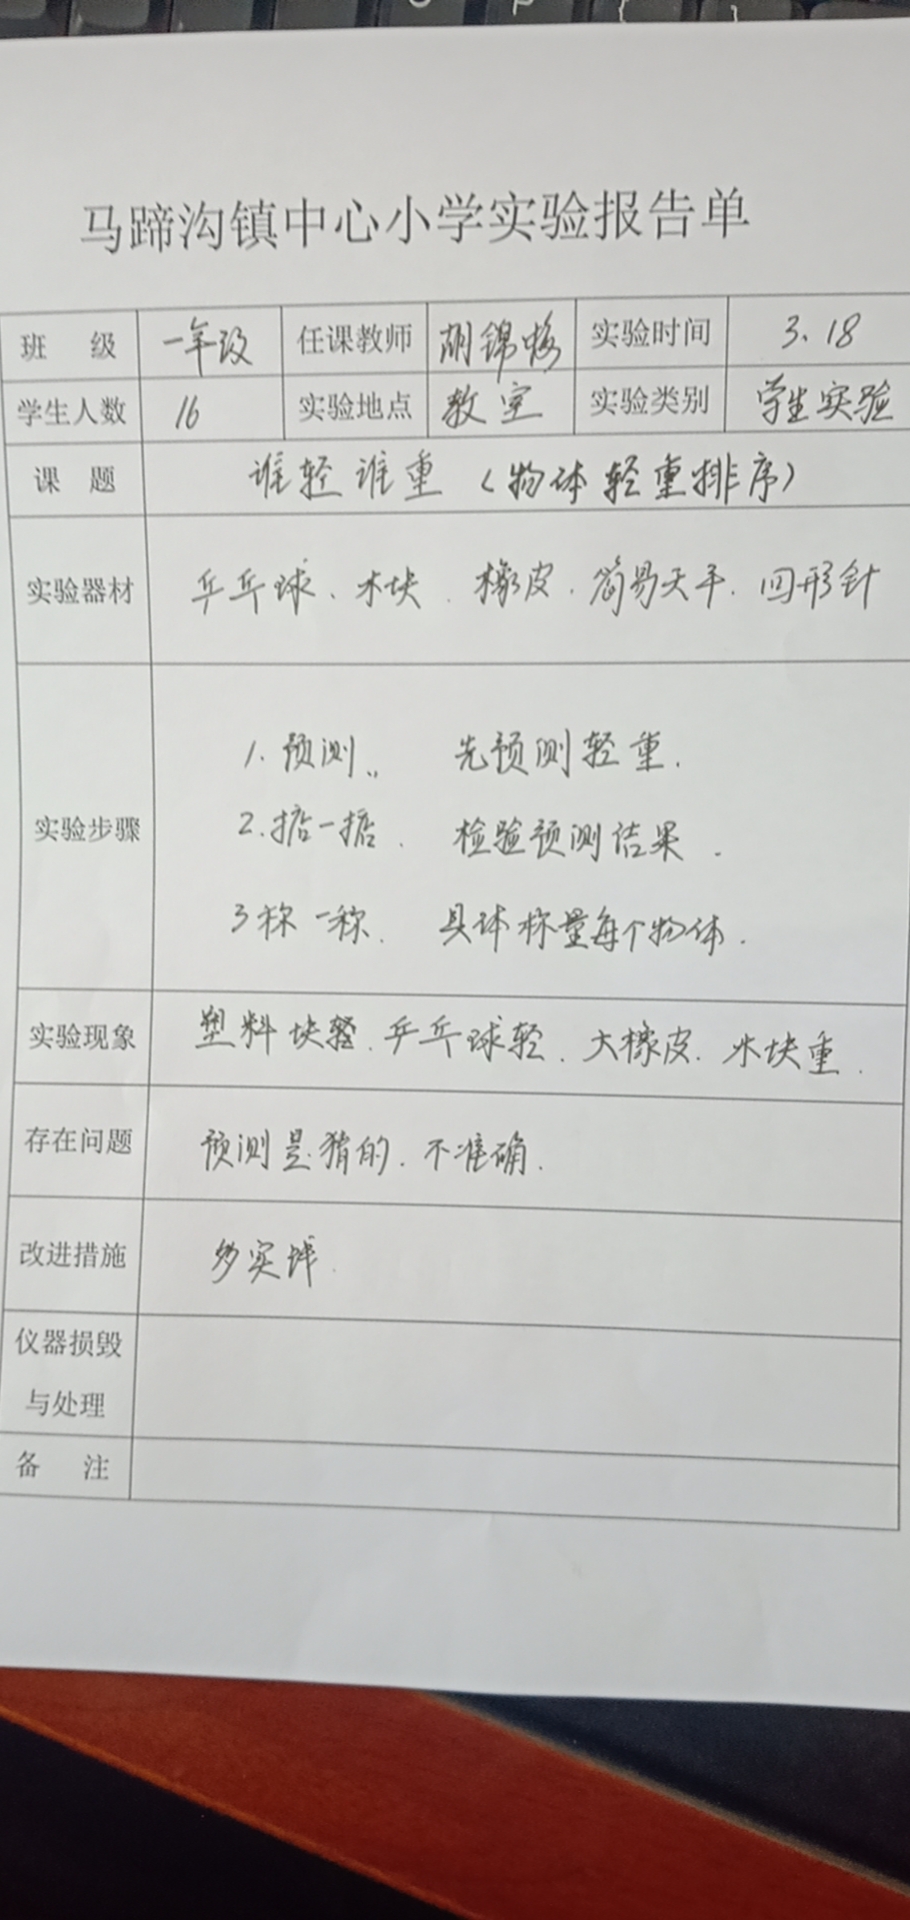 马蹄沟镇中心小学实验报告单
班 级 一年级 任课教师 胡锦梅 实验时间 3.18
学生人数 16 实验地点 教室 实验类别 学生实验
课 题 谁轻谁重(物体轻重排序)
实验器材 乒乓球、木块、橡皮、简易天平、回形针
1.预测、 先预测轻重.
实验步骤 2.掂一掂. 检验预测结果.
3称一称. 具体称量每个物体.
实验现象 塑料块轻、乒乓球轻、大橡皮、木块重.
存在问题 预测是猜的.不准确.
改进措施 多实
仪器损毁
与处理
备 注